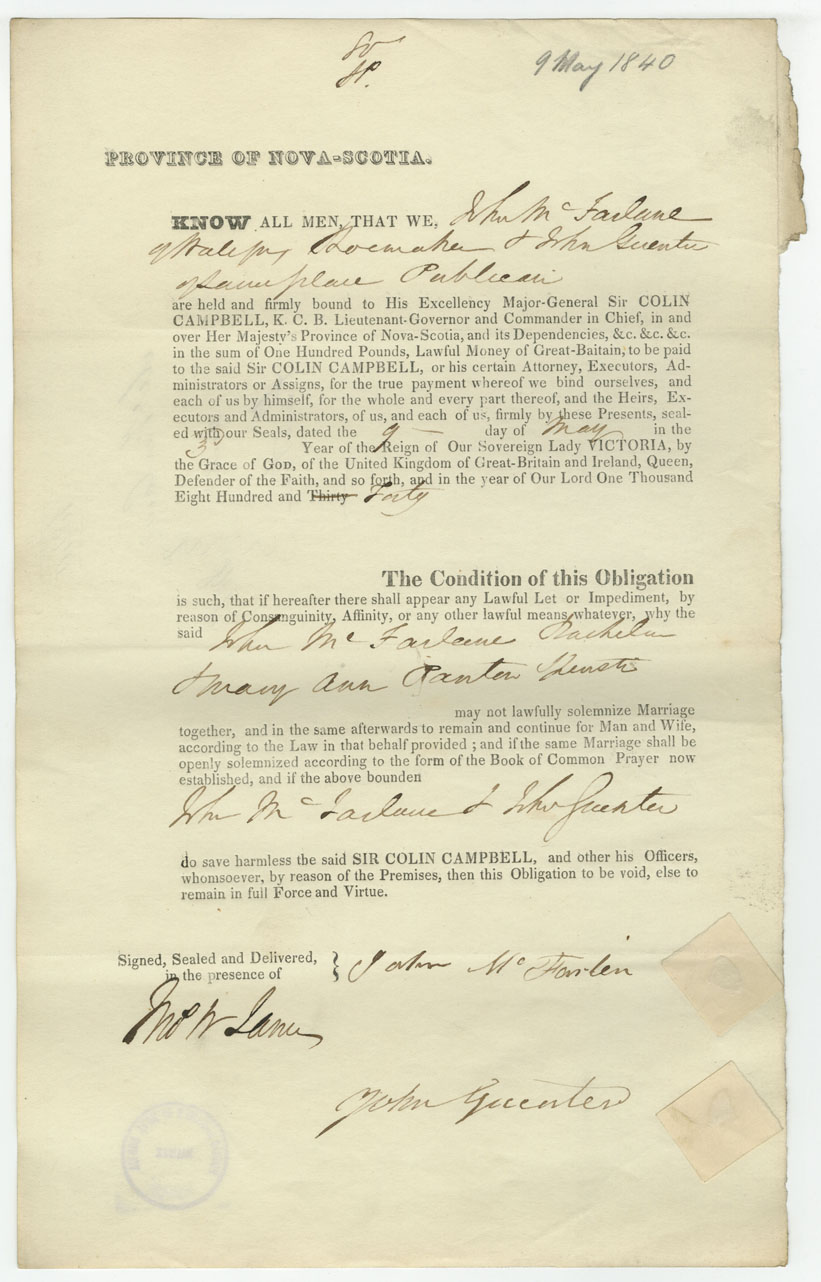 9 May 1840
PROVINCE OF NOVA-SCOTIA.
KNOW ALL MEN, THAT WE, John Mc Farlane
of Shoemaker & John Guenter
of same place Publican
are held and firmly bound to His Excellency Major-General Sir COLIN
CAMPBELL, K. C. B. Lieutenant-Governor and Commander in Chief, in and
over Her Majesty's Province of Nova-Scotia, and its Dependencies, &c. &c. &c.
in the sum of One Hundred Pounds, Lawful Money of Great-Baitain, to be paid
to the said Sir COLIN CAMPBELL, or his certain Attorney, Executors, Ad-
ministrators or Assigns, for the true payment whereof we bind ourselves, and
each of us by himself, for the whole and every part thereof, and the Heirs, Ex-
ecutors and Administrators, of us, and each of us, firmly by these Presents, seal-
ed with our Seals, dated the 9 day of May in the
3 Year of the Reign of Our Sovereign Lady VICTORIA, by
the Grace of GOD, of the United Kingdom of Great-Britain and Ireland, Queen,
Defender of the Faith, and so forth, and in the year of Our Lord One Thousand
Eight Hundred and Thirty Forty
The Condition of this Obligation
is such, that if hereafter there shall appear any Lawful Let or Impediment, by
reason of Consanguinity, Affinity, or any other lawful means whatever, why the
said John Mc Farlane Bachelor
& Mary Ann Panton Spinster
may not lawfully solemnize Marriage
together, and in the same afterwards to remain and continue for Man and Wife,
according to the Law in that behalf provided ; and if the same Marriage shall be
openly solemnized according to the form of the Book of Common Prayer now
established, and if the above bounden
John Mc Farlane & John Guenter
do save harmless the said SIR COLIN CAMPBELL, and other his Officers,
whomsoever, by reason of the Premises, then this Obligation to be void, else to
remain in full Force and Virtue.
Signed, Sealed and Delivered,
in the presence of
John Mc Farlin
John Guenter